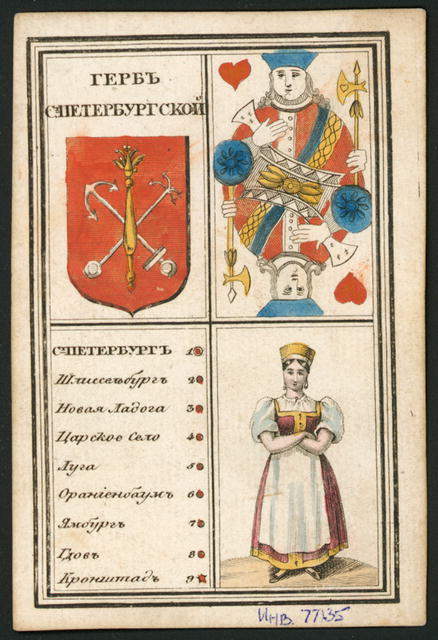 ГЕРБЪ
С.ПЕТЕРБУРГСКОЙ
С.ПЕТЕРБУРГЪ 1
Шлиссельбургъ 2
Новая Ладога 3
Царское Село 4
Луга 5
Ораніенбаумъ 6
Ямбургъ 7
Гдовъ 8
Кронштадъ 9
Инв. 77135